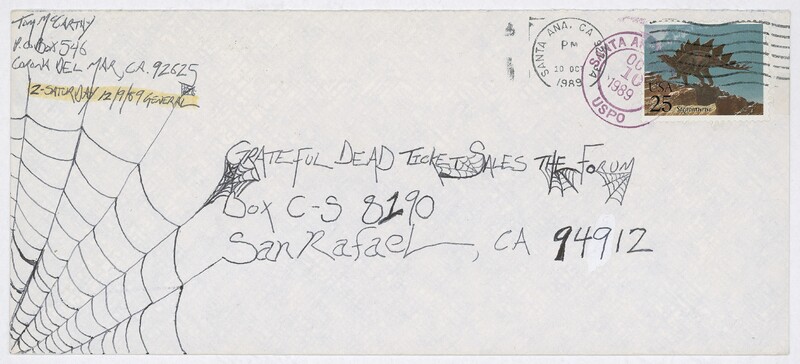 Tom McCarthy
P.O. Box 546
Corona DEL MAR, CA. 92625
2-SATURDAY 12/9/89 GENERAL
SANTA ANA, CA
PM
10 OCT
1989
SANTA AN
OCT
10
1989
USPO
USA
25
Stegosaurus
GRATEFUL DEAD TICKET SALES THE FORUM
Box C-S 8190
San Rafael, CA 94912